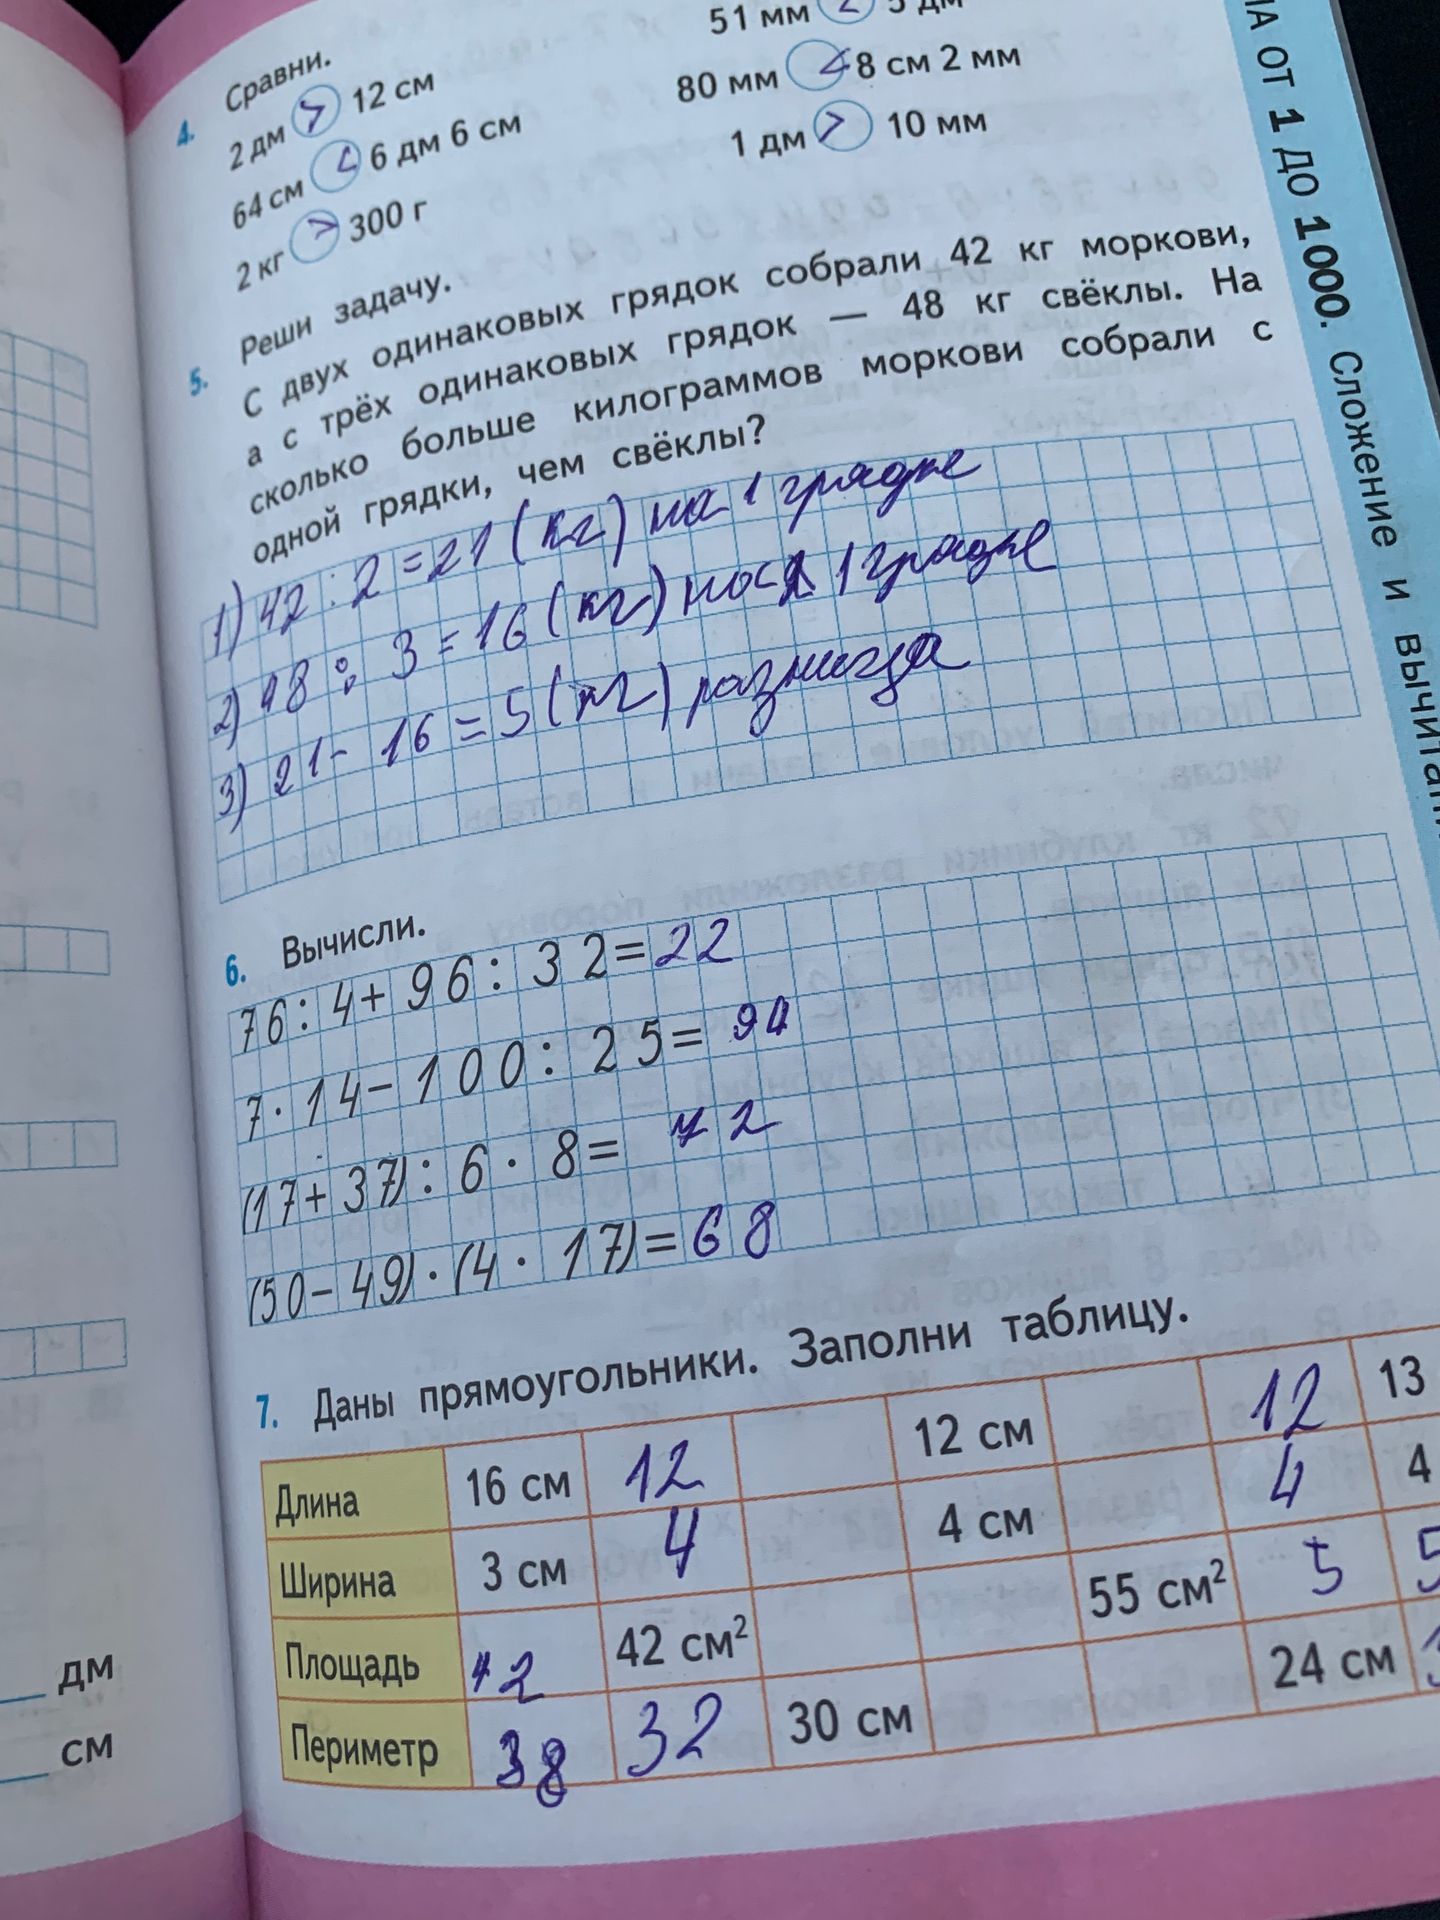 51 мм < 5 дм
4. Сравни.
2 дм > 12 см
80 мм < 8 см 2 мм
64 см < 6 дм 6 см
1 дм > 10 мм
2 кг > 300 г
5. Реши задачу.
С двух одинаковых грядок собрали 42 кг моркови,
а с трёх одинаковых грядок — 48 кг свёклы. На
сколько больше килограммов моркови собрали с
одной грядки, чем свёклы?
1) 42 : 2 = 21 (кг) на 1 грядке
2) 48 : 3 = 16 (кг) 1 грядке
3) 21 - 16 = 5 (кг) разница
6. Вычисли.
76 : 4 + 96 : 32 = 22
7 · 14 - 100 : 25 = 94
(17 + 37) : 6 · 8 = 72
(50 - 49) · (4 · 17) = 68
7. Даны прямоугольники. Заполни таблицу.
Длина 16 см 12 12 см 12 13
Ширина 3 см 4 4 см 4 4
Площадь 42 42 см² 55 см² 5 5
Периметр 38 32 30 см 24 см
ДО 1000. Сложение и
ОТ 1
дм
см